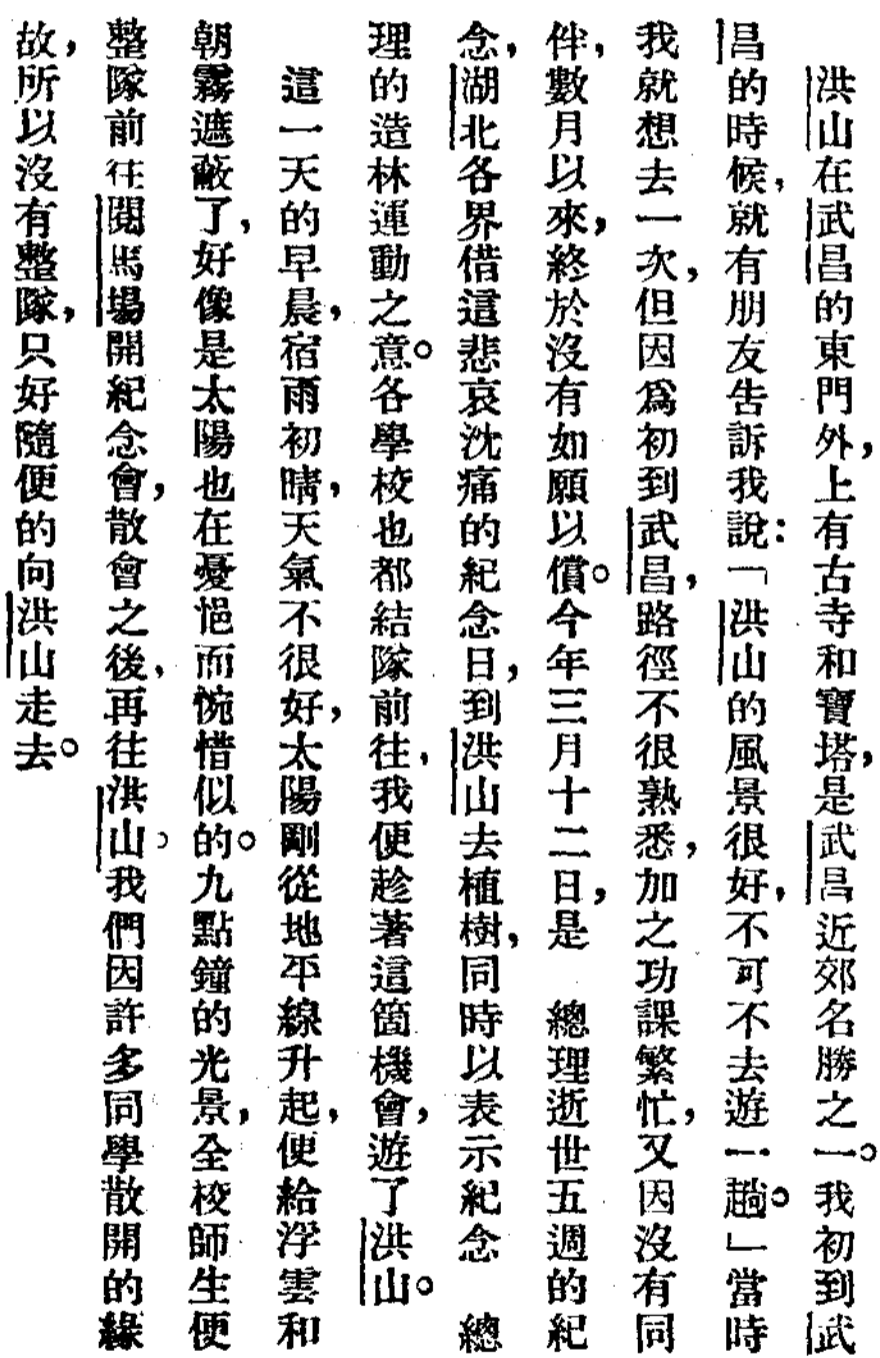 洪山在武昌的東門外，上有古寺和寶塔，是武昌近郊名勝之一。我初到武
昌的時候，就有朋友告訴我說：「洪山的風景很好，不可不去遊一趟。」當時
我就想去一次，但因爲初到武昌，路徑不很熟悉，加之功課繁忙，又因沒有同
伴，數月以來，終於沒有如願以償。今年三月十二日，是　總理逝世五週的紀
念，湖北各界借這悲哀沈痛的紀念日，到洪山去植樹，同時以表示紀念　總
理的造林運動之意。各學校也都結隊前往，我便趁著這箇機會，遊了洪山。
這一天的早晨，宿雨初晴，天氣不很好，太陽剛從地平線升起，便給浮雲和
朝霧遮蔽了，好像是太陽也在憂悒而惋惜似的。九點鐘的光景，全校師生便
整隊前往閱馬場開紀念會，散會之後，再往洪山。我們因許多同學散開的緣
故，所以沒有整隊，只好隨便的向洪山走去。